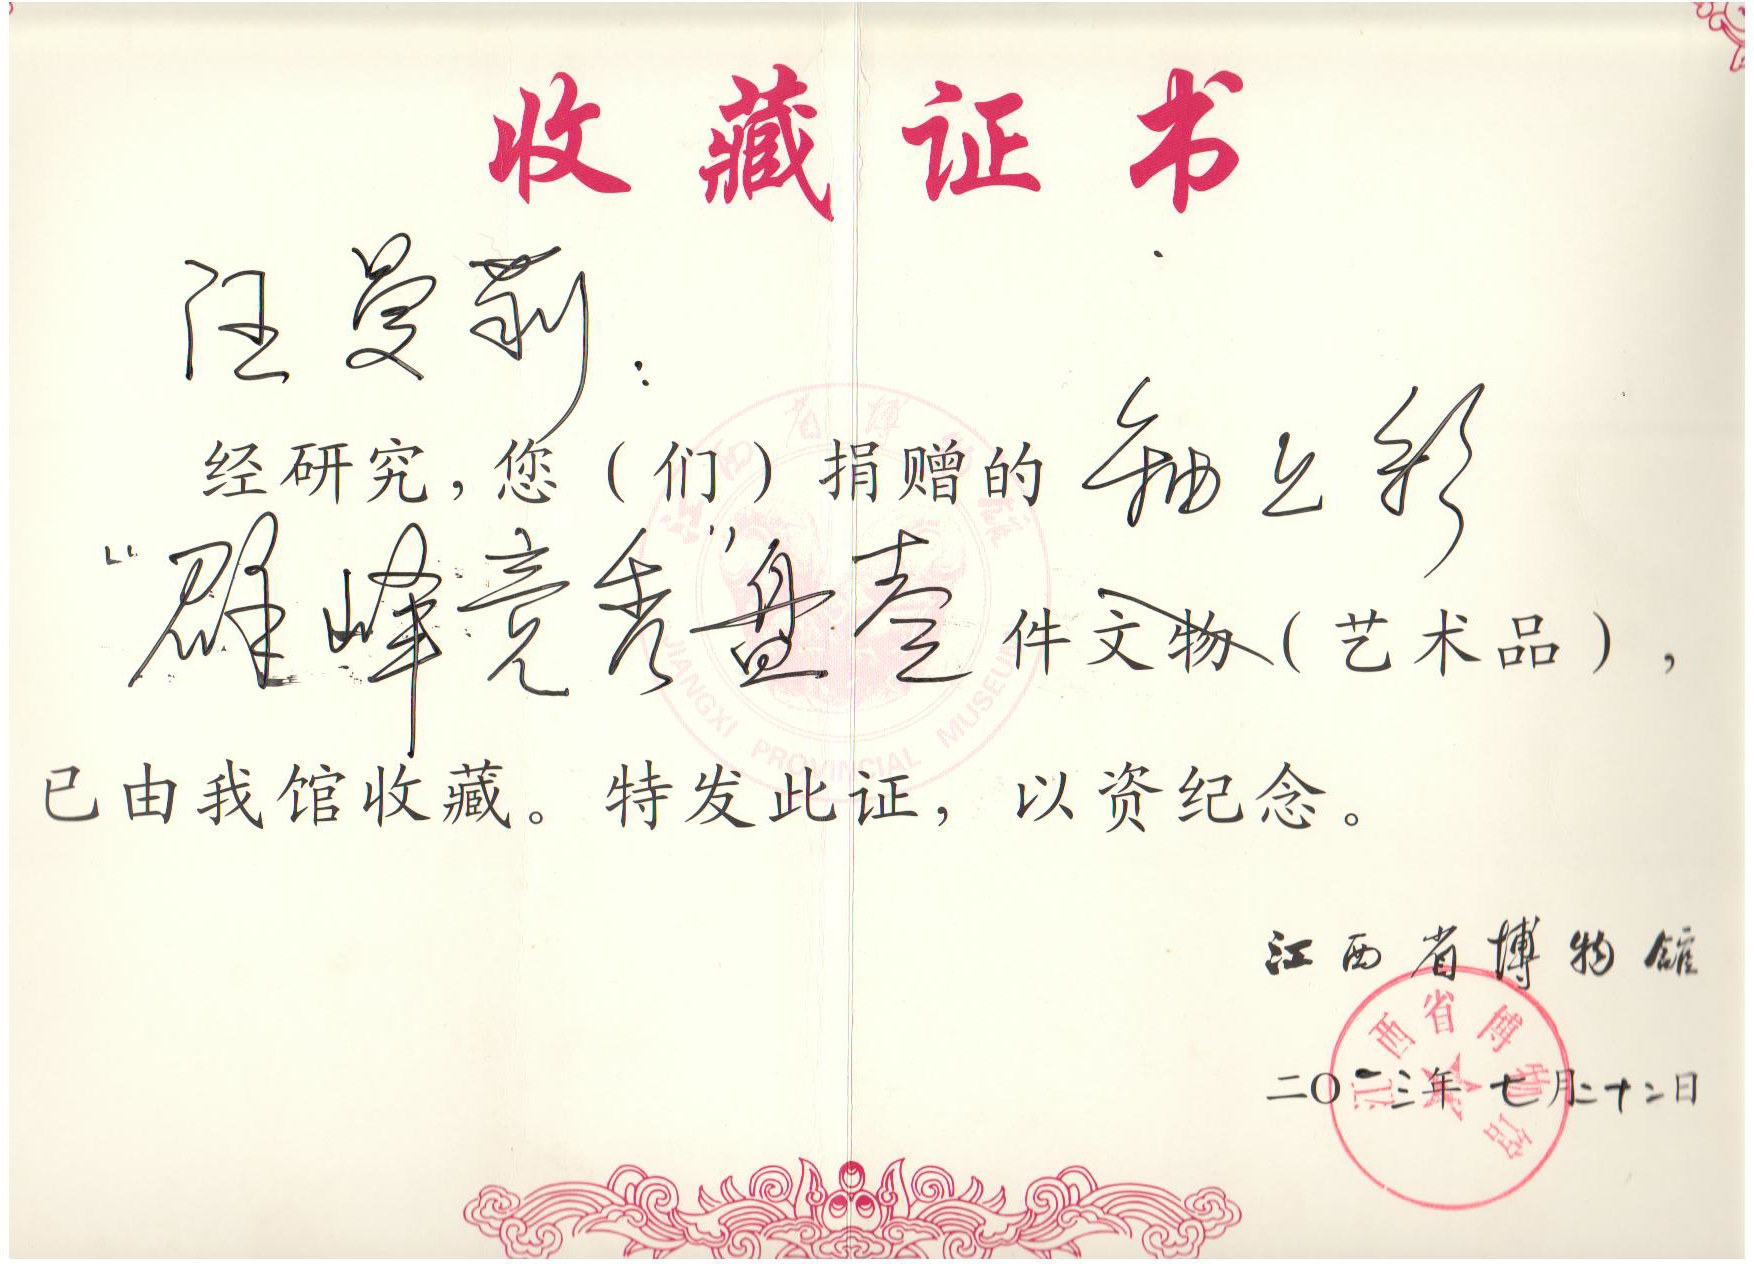 收藏证书
汪曼莉：
经研究，您（们）捐赠的釉上彩
“群峰竞秀”盘壹件文物（艺术品），
已由我馆收藏。特发此证，以资纪念。
江西省博物馆
二〇一三年七月二十二日
江西省博物馆
JIANGXI PROVINCIAL MUSEUM